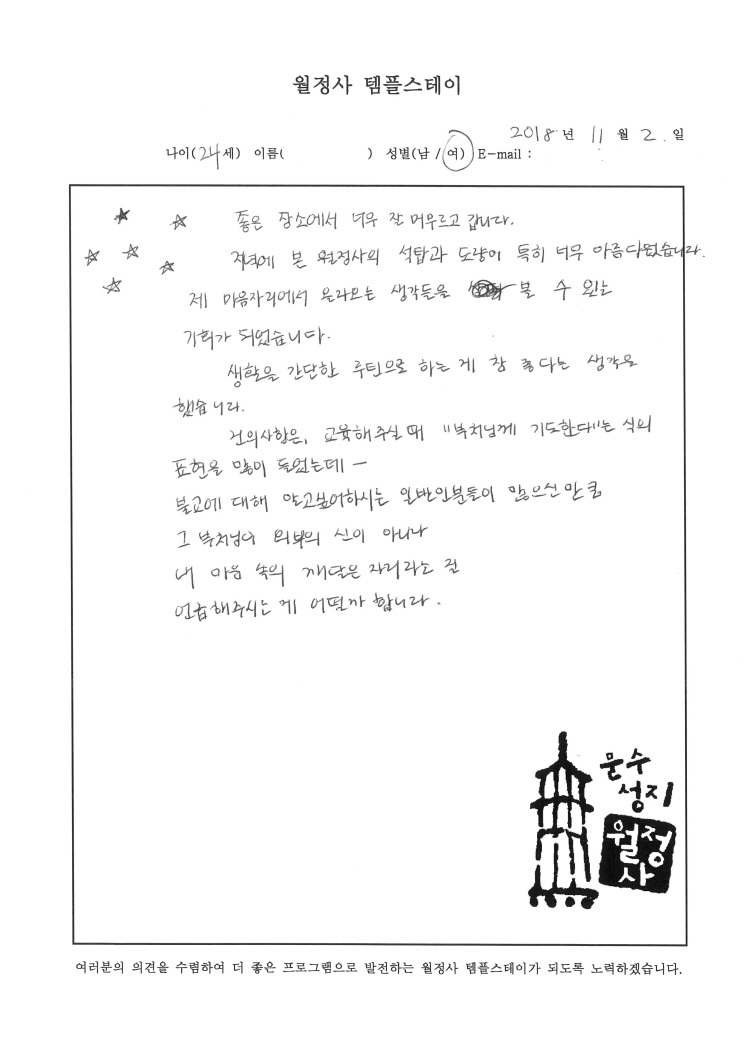 월정사 템플스테이
2018년 11월 2.일
나이(24세) 이름( ) 성별(남 / 여) E-mail :
좋은 장소에서 너무 잘 머무르고 갑니다.
저녁에 본 월정사의 석탑과 도량이 특히 너무 아름다웠습니다.
제 마음자리에서 올라오는 생각들을 볼 수 있는
기회가 되었습니다.
생활을 간단한 루틴으로 하는 게 참 좋다는 생각을
했습니다.
건의사항은, 교육해주실 때 "부처님께 기도한다"는 식의
표현을 많이 들었는데 -
불교에 대해 알고싶어하시는 일반인분들이 많으신 만큼
그 부처님이 외부의 신이 아니라
내 마음 속의 깨달은 자리라는 걸
언급해주시는 게 어떨까 합니다.
문수
성지
월정
사
여러분의 의견을 수렴하여 더 좋은 프로그램으로 발전하는 월정사 템플스테이가 되도록 노력하겠습니다.